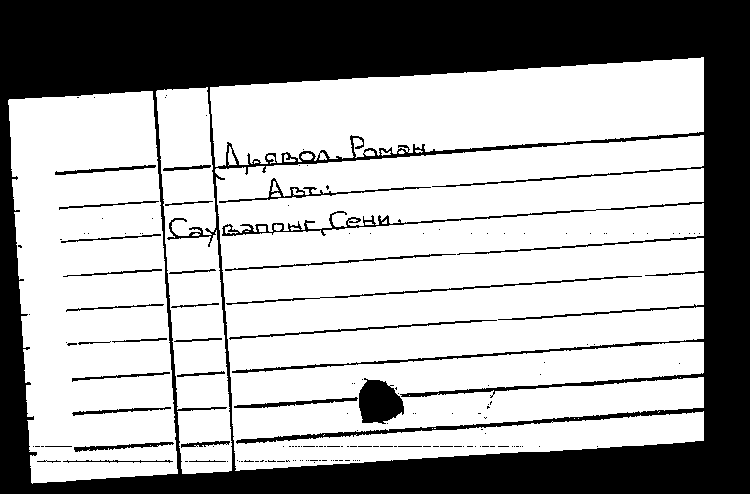 Дьявол. Роман.
Авт.:
Саувапонг, Сени.